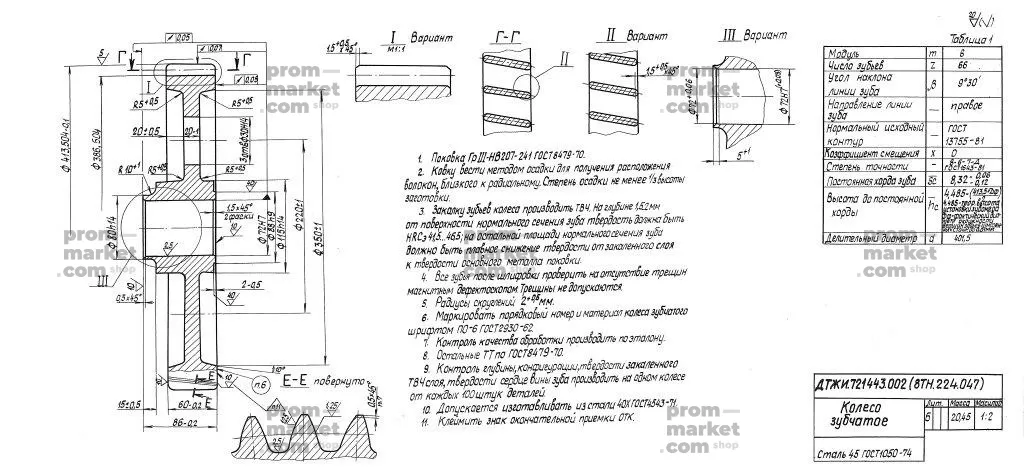 I Вариант
М1:1
1,5+0,5 ×45°
Г-Г
II
II Вариант
1,5+0,5 ×45°
III Вариант
Ф72H7
5+1
Таблица 1
Модуль m 6
Число зубьев z 66
Угол наклона линии зуба β 9°30'
Направление линии зуба — правое
Нормальный исходный контур — ГОСТ 13755-81
Коэффициент смещения x 0
Степень точности —
Постоянная хорда зуба Sc 8,32 -0,06 -0,12
Высота до постоянной хорды hc 4,485
Делительный диаметр d 401,5
0,05
Г
Г
I
5
Ф 413,504-0,1
Ф 396,504
R5+0,5
R5+0,5
20±0,5
20-1
R10+1
R5+0,5
R5+0,5
1,5×45°
2 фаски
Ф72H7
Ф220±1
Ф350±1
2,5
III
0,5×45°
2-0,5
п.6
E
E
15±0,5
60-0,2
86-0,2
E-E повернуто
1,25
prom-
market
.com shop
1. Поковка Гр III-НВ207-241 ГОСТ 8479-70.
2. Ковку вести методом осадки для получения расположения
волокон, близкого к радиальному. Степень осадки не менее 2/3 высоты
заготовки.
3. Закалку зубьев колеса производить ТВЧ. На глубине 1,5.2мм
от поверхности нормального сечения зуба твердость должна быть
HRCэ 41,5...46,5, на остальной площади нормального сечения зуба
должно быть плавное снижение твердости от закаленного слоя
к твердости основного металла поковки.
4. Все зубья после шлифовки проверить на отсутствие трещин
магнитным дефектоскопом. Трещины не допускаются.
5. Радиусы скруглений 2+0,5 мм.
6. Маркировать порядковый номер и материал колеса зубчатого
шрифтом ПО-6 ГОСТ2930-62.
7. Контроль качества обработки производить по эталону.
8. Остальные ТТ по ГОСТ8479-70.
9. Контроль глубины, конфигурации, твердости закаленного
ТВЧ слоя, твердости сердцевины зуба производить на одном колесе
от каждых 100 штук деталей.
10. Допускается изготавливать из стали 40Х ГОСТ4543-71.
11. Клеймить знак окончательной приемки ОТК.
ДТЖИ.721443.002 (8ТН.224.047)
Колесо
зубчатое
Лит. Масса Масштаб
Б 20,45 1:2
Сталь 45 ГОСТ1050-74